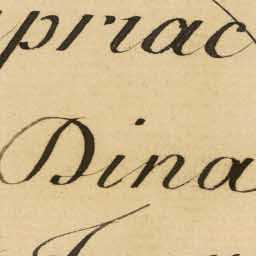 priac
Dina